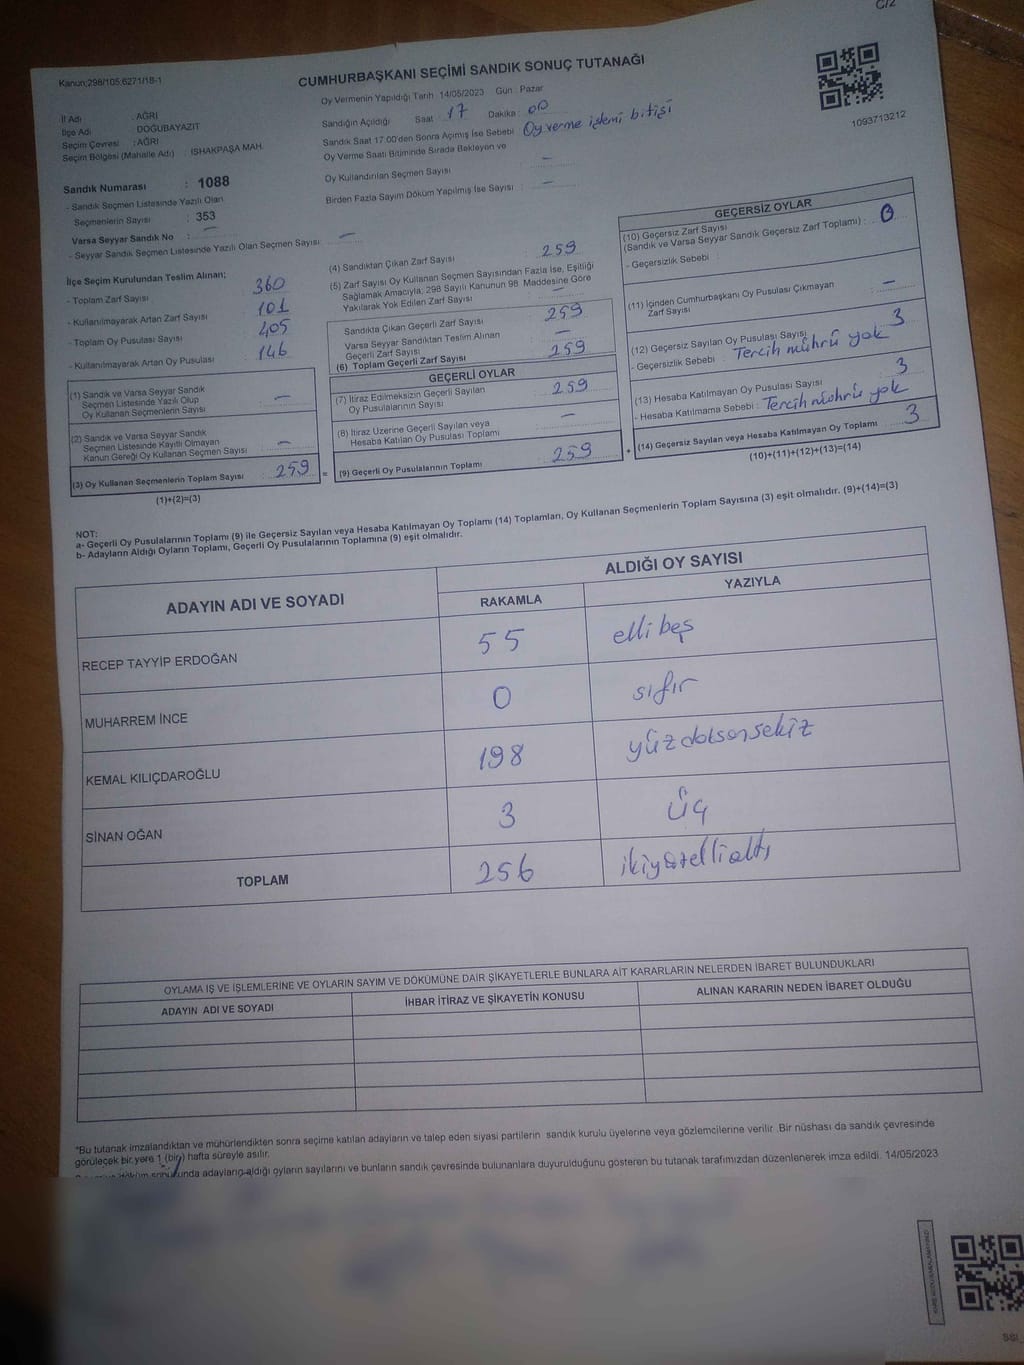 C/2
Kanun;298/105,6271/18-1
CUMHURBAŞKANI SEÇİMİ SANDIK SONUÇ TUTANAĞI
Oy Vermenin Yapıldığı Tarih 14/05/2023 Gün : Pazar
İl Adı : AĞRI
İlçe Adı : DOĞUBAYAZIT
Seçim Çevresi : AĞRI
Seçim Bölgesi (Mahalle Adı) : ISHAKPAŞA MAH.
Sandığın Açıldığı Saat : 17 Dakika : 00
Sandık Saat 17:00'den Sonra Açımış İse Sebebi Oy verme işlemi bitişi
Oy Verme Saati Bitiminde Sırada Bekleyen ve
Oy Kullandırılan Seçmen Sayısı : —
Birden Fazla Sayım Döküm Yapılmış İse Sayısı : —
1093713212
Sandık Numarası : 1088
- Sandık Seçmen Listesinde Yazılı Olan
Seçmenlerin Sayısı : 353
Varsa Seyyar Sandık No : —
- Seyyar Sandık Seçmen Listesinde Yazılı Olan Seçmen Sayısı : —
İlçe Seçim Kurulundan Teslim Alınan;
- Toplam Zarf Sayısı : 360
- Kullanılmayarak Artan Zarf Sayısı : 101
- Toplam Oy Pusulası Sayısı : 405
- Kullanılmayarak Artan Oy Pusulası : 146
(1) Sandık ve Varsa Seyyar Sandık
Seçmen Listesinde Yazılı Olup
Oy Kullanan Seçmenlerin Sayısı : —
(2) Sandık ve Varsa Seyyar Sandık
Seçmen Listesinde Kayıtlı Olmayan
Kanun Gereği Oy Kullanan Seçmen Sayısı : —
(3) Oy Kullanan Seçmenlerin Toplam Sayısı : 259
(1)+(2)=(3)
(4) Sandıktan Çıkan Zarf Sayısı : 259
(5) Zarf Sayısı Oy Kullanan Seçmen Sayısından Fazla İse, Eşitliği
Sağlamak Amacıyla; 298 Sayılı Kanunun 98 Maddesine Göre
Yakılarak Yok Edilen Zarf Sayısı : —
Sandıkta Çıkan Geçerli Zarf Sayısı : 259
Varsa Seyyar Sandıktan Teslim Alınan
Geçerli Zarf Sayısı : —
(6) Toplam Geçerli Zarf Sayısı : 259
GEÇERLİ OYLAR
(7) İtiraz Edilmeksizin Geçerli Sayılan
Oy Pusulalarının Sayısı : 259
(8) İtiraz Üzerine Geçerli Sayılan veya
Hesaba Katılan Oy Pusulası Toplamı : —
= (9) Geçerli Oy Pusulalarının Toplamı : 259
GEÇERSİZ OYLAR
(10) Geçersiz Zarf Sayısı
(Sandık ve Varsa Seyyar Sandık Geçersiz Zarf Toplamı) : 0
- Geçersizlik Sebebi :
(11) İçinden Cumhurbaşkanı Oy Pusulası Çıkmayan
Zarf Sayısı : —
(12) Geçersiz Sayılan Oy Pusulası Sayısı : 3
- Geçersizlik Sebebi : Tercih mührü yok
(13) Hesaba Katılmayan Oy Pusulası Sayısı : 3
- Hesaba Katılmama Sebebi : Tercih mührü yok
+ (14) Geçersiz Sayılan veya Hesaba Katılmayan Oy Toplamı : 3
(10)+(11)+(12)+(13)=(14)
NOT:
a- Geçerli Oy Pusulalarının Toplamı (9) ile Geçersiz Sayılan veya Hesaba Katılmayan Oy Toplamı (14) Toplamları, Oy Kullanan Seçmenlerin Toplam Sayısına (3) eşit olmalıdır. (9)+(14)=(3)
b- Adayların Aldığı Oyların Toplamı, Geçerli Oy Pusulalarının Toplamına (9) eşit olmalıdır.
ADAYIN ADI VE SOYADI
ALDIĞI OY SAYISI
RAKAMLA YAZIYLA
RECEP TAYYİP ERDOĞAN 55 elli beş
MUHARREM İNCE 0 sıfır
KEMAL KILIÇDAROĞLU 198 yüzdoksonsekiz
SİNAN OĞAN 3 üç
TOPLAM 256 ikiyüzellialtı
OYLAMA İŞ VE İŞLEMLERİNE VE OYLARIN SAYIM VE DÖKÜMÜNE DAİR ŞİKAYETLERLE BUNLARA AİT KARARLARIN NELERDEN İBARET BULUNDUKLARI
ADAYIN ADI VE SOYADI İHBAR İTİRAZ VE ŞİKAYETİN KONUSU ALINAN KARARIN NEDEN İBARET OLDUĞU
*Bu tutanak imzalandıktan ve mühürlendikten sonra seçime katılan adayların ve talep eden siyasi partilerin sandık kurulu üyelerine veya gözlemcilerine verilir .Bir nüshası da sandık çevresinde
görülecek bir yere 1 (bir) hafta süreyle asılır.
sonucunda adayların aldığı oyların sayılarını ve bunların sandık çevresinde bulunanlara duyurulduğunu gösteren bu tutanak tarafımızdan düzenlenerek imza edildi. 14/05/2023